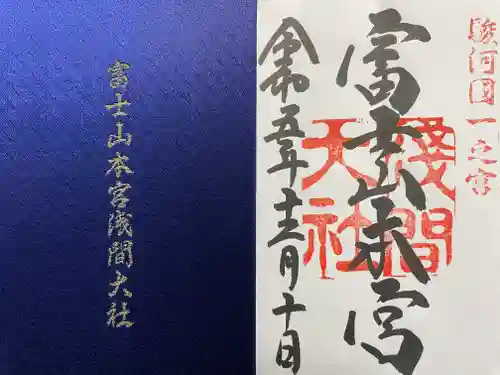 富士山本宮浅間大社
駿河國一之宮
富士山本宮
淺間大社
令和五年十二月十日